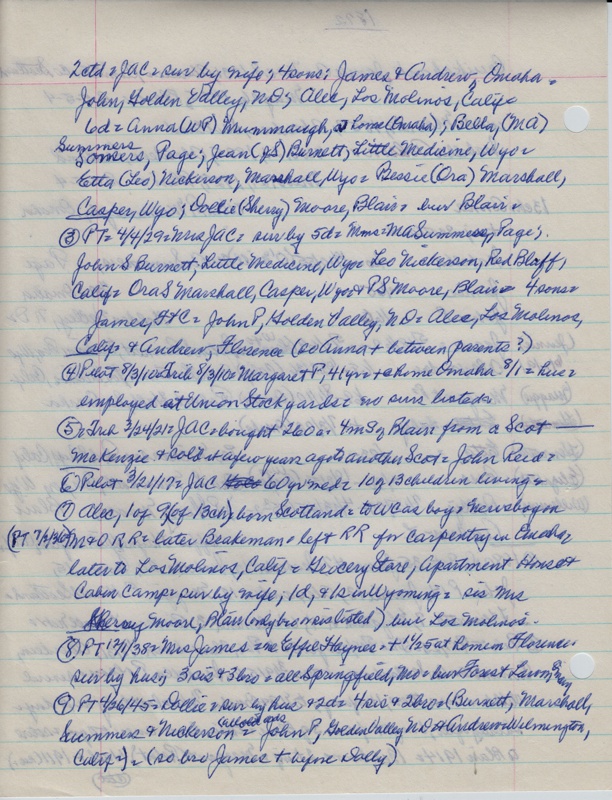 1892
2ctd = JAC = sur by wife; 4 sons: James & Andrew, Omaha =
John, Golden Valley, ND; Alec, Los Molinos, Calif =
6d = Anna (WP) Mummaugh, Home (Omaha); Bella, (MA)
Summers
Somers, Page; Jean (JS) Burnett, Little Medicine, Wyo =
Etta (Leo) Nickerson, Marshall, Wyo = Bessie (Ora) Marshall,
Casper, Wyo; Dollie (Sherry) Moore, Blair = bur Blair =
③ PT = 4/4/29 = Mrs JAC = sur by 5d = Mmes = MA Summers, Page;
John S Burnett, Little Medicine, Wyo = Leo Nickerson, Red Bluff,
Calif = Ora S Marshall, Casper, Wyo & PS Moore, Blair = 4 sons =
James, H & C = John P, Golden Valley, ND = Alec, Los Molinos,
Calif & Andrew, Florence (so Anna + between parents?)
④ Pilot 8/3/10 = Trib 8/3/10 = Margaret P, 41yr = + @ home Omaha 8/1 = hus =
employed at Union Stockyards = no surs listed =
⑤ = Trib 3/24/21 = JAC = bought 260a = 4m S of Blair from a Scot —
McKenzie & sold it a few years ago to another Scot = John Reid =
⑥ Pilot 3/21/17 = JAC 60yr wed = 10 of 13 children living =
⑦ Alec, 1 of 9 (of 13 ch) born Scotland = to WCas boy = Newsboy on
(PT 7/1/36) M & O RR = later Brakeman = left RR for carpentry in Omaha,
later to Los Molinos, Calif = Grocery Store, Apartment House &
Cabin Camp = sur by wife, 1d, & 1s in Wyoming = sis Mrs
Moore, Blair (only bro or sis listed) bur Los Molinos =
⑧ PT 12/1/38 = Mrs James = ne Effie Haynes = + 11/25 at home in Florence =
sur by hus; 3 sis & 3 bro = all Springfield, Mo = bur Forest Lawn,
⑨ PT 4/26/45 = Dollie = sur by hus & 2d = 4 sis & 2 bro = (Burnett, Marshall,
Summers & Nickerson = John P, Golden Valley ND & Andrew = Wilmington,
Calif =) = (so bro James + before Dolly)